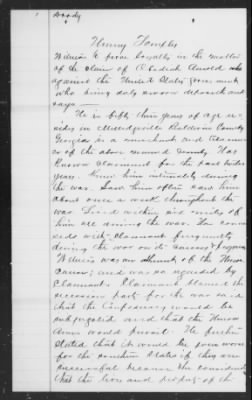 Henry Temples
Witness to prove loyalty in the matter
of the claim of Obediah Arnold
against the United States Government
who being duly sworn deposeth and
says —
He is fifty three years of age re-
sides in Milledgeville Baldwin County
Georgia is a merchant and
of the above named County. Has
Known claimant for the past
years. Knew him intimately during
the war. Saw him often saw him
about once a week throughout the
war. Lived within six miles of
him all during the war. Has
with Claimant frequently
during the war on its causes &
Witness was an adherent of the Union
cause; and was so regarded by
Claimant. Claimant blamed the
secession party for the war said
that the Confederacy would be
subjugated and that the Union
Army would prevail. He further
stated that it would be
for the southern States if they are
successful because he considered
that the lives and property of the